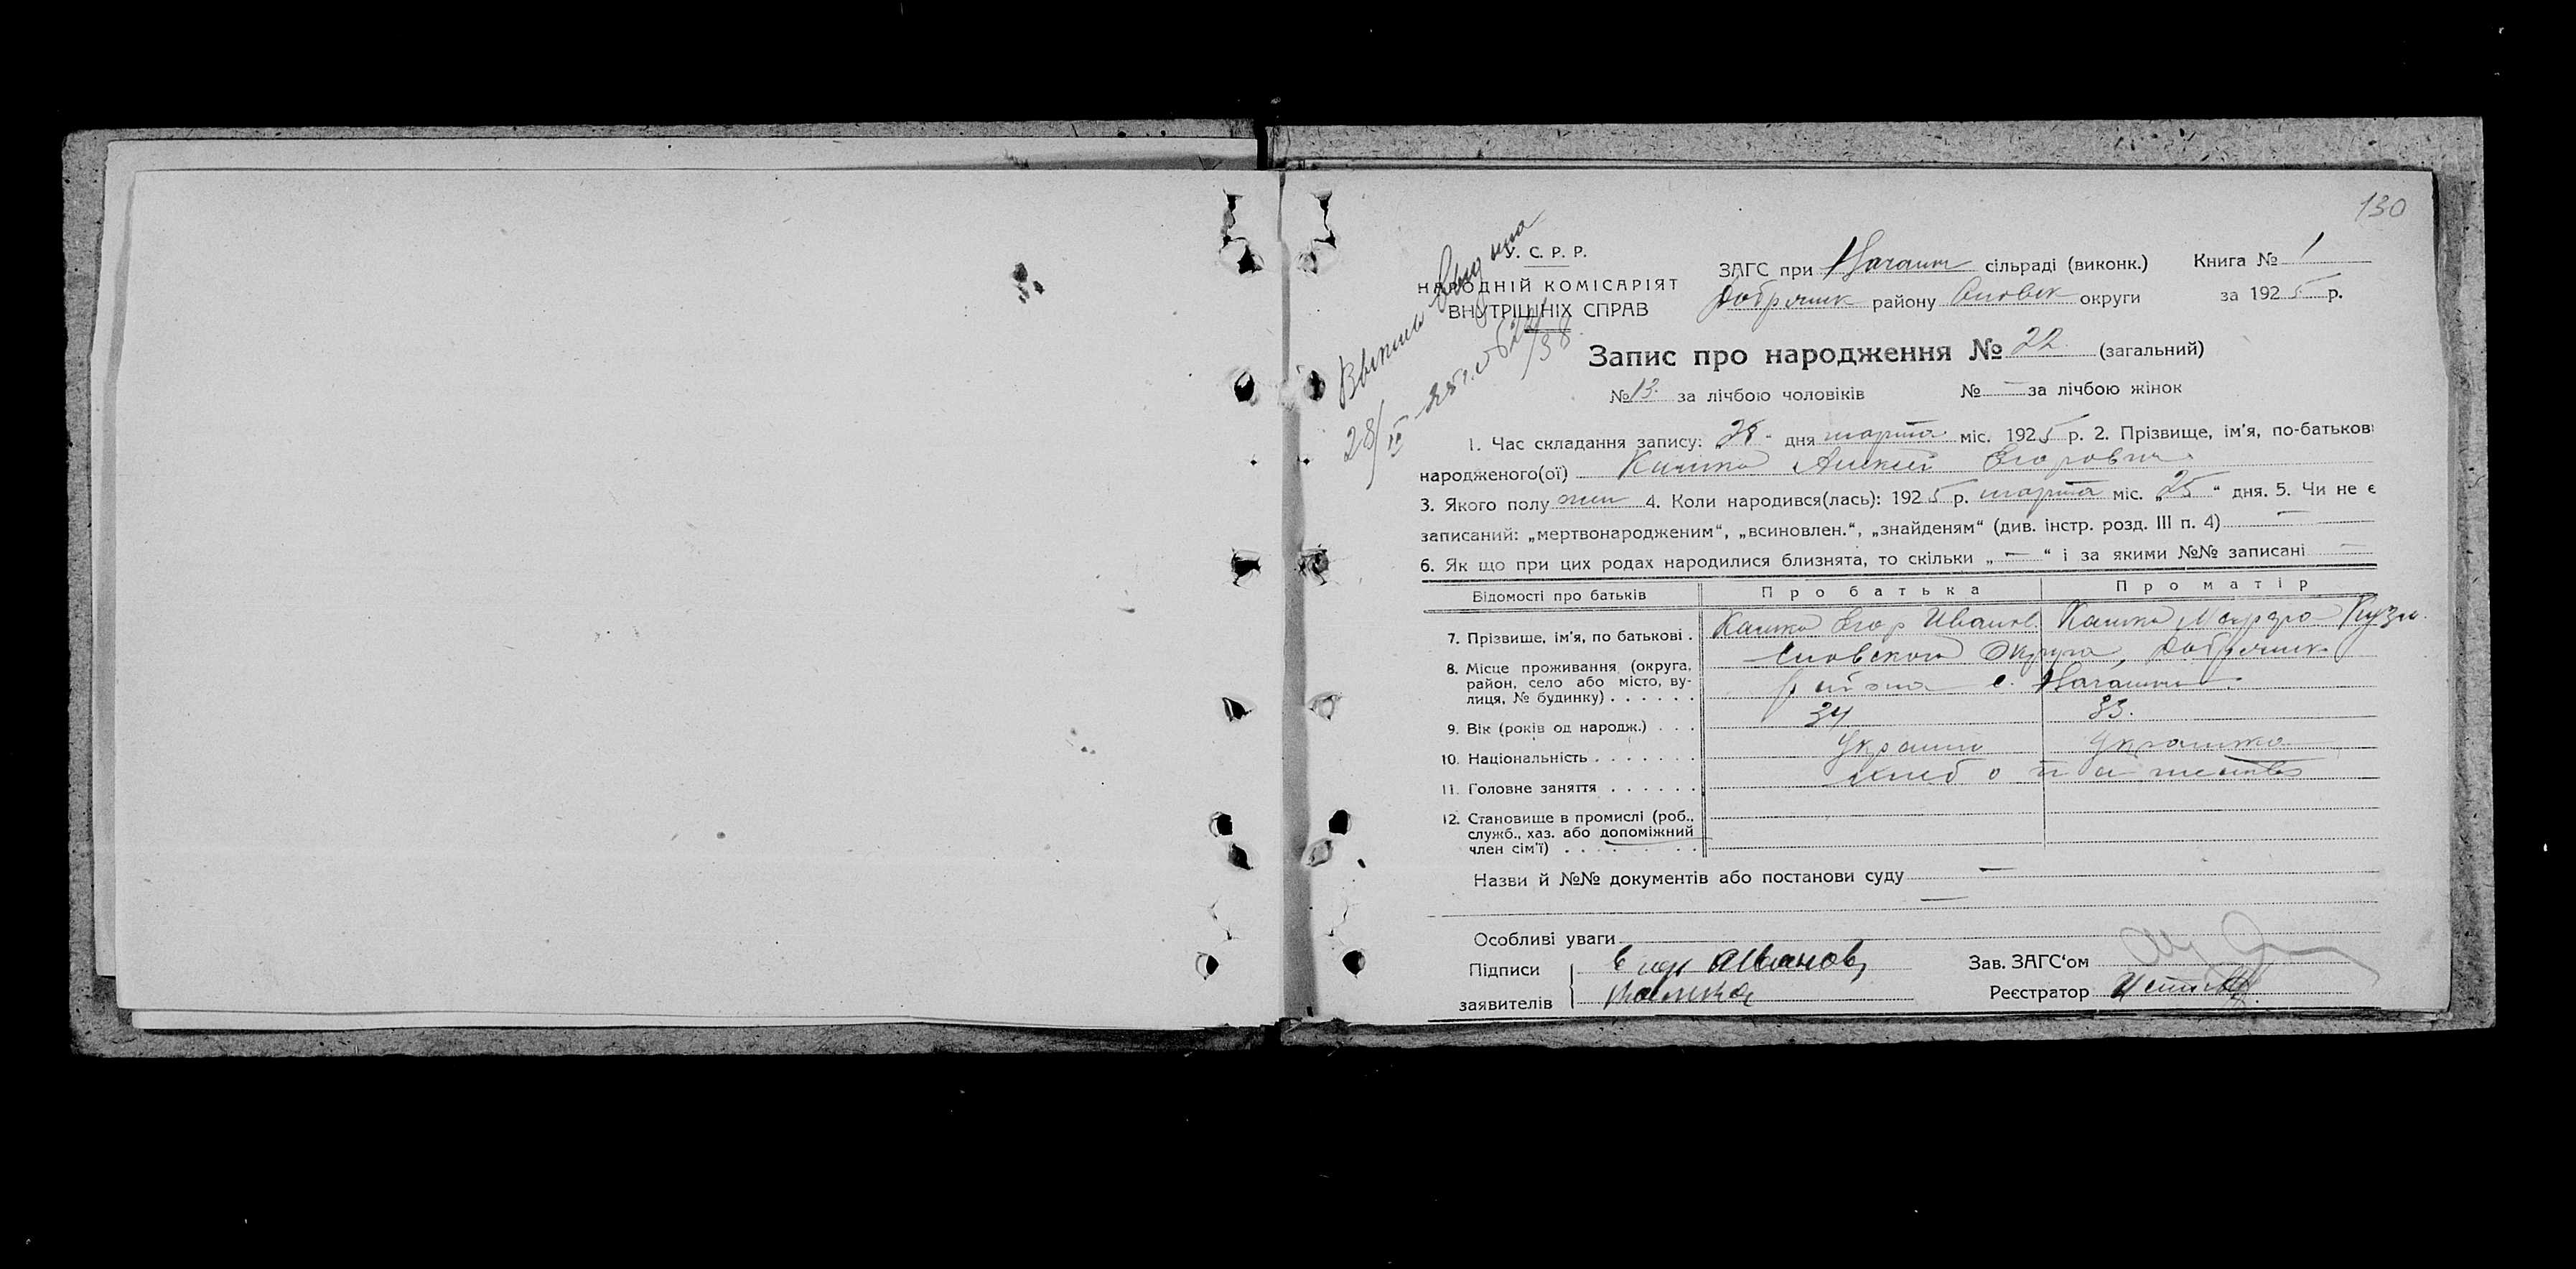 130
У. С. Р. Р.
НАРОДНІЙ КОМІСАРІЯТ
ВНУТРІШНІХ СПРАВ
ЗАГС при сільраді (виконк.) Книга № 1
району округи за 1925 р.
Выпись выдана
28/IV
Запис про народження № 22 (загальний)
№ 13. за лічбою чоловіків № — за лічбою жінок
1. Час складання запису: „28" дня марта міс. 1925 р. 2. Прізвище, ім'я, по-батькові
народженого(ої) Кашка Алексей Егорович
3. Якого полу 4. Коли народився(лась): 1925 р. марта міс. „25" дня. 5. Чи не є
записаний: „мертвонародженим", „всиновлен.", „знайденям" (див. інстр. розд. III п. 4) —
6. Як що при цих родах народилися близнята, то скільки „—" і за якими №№ записані —
Відомості про батьків Про батька Про матір
7. Прізвище, ім'я, по батькові . Кашка Егор Иванов. Кашка Кузм.
8. Місце проживання (округа, округа,
район, село або місто, ву- района с.
лиця, № будинку) . . . . . .
9. Вік (років од народж.) . . . 34 33.
10. Національність . . . . . . . Украинец Украинка
11. Головне заняття . . . . . . хлебопашество
12. Становище в промислі (роб.,
служб., хаз. або допоміжний
член сім'ї) . . . . . . . .
Назви й №№ документів або постанови суду —
—
Особливі уваги
Підписи Егор Иванов Зав. ЗАГС'ом
заявителів Кашка Реєстратор